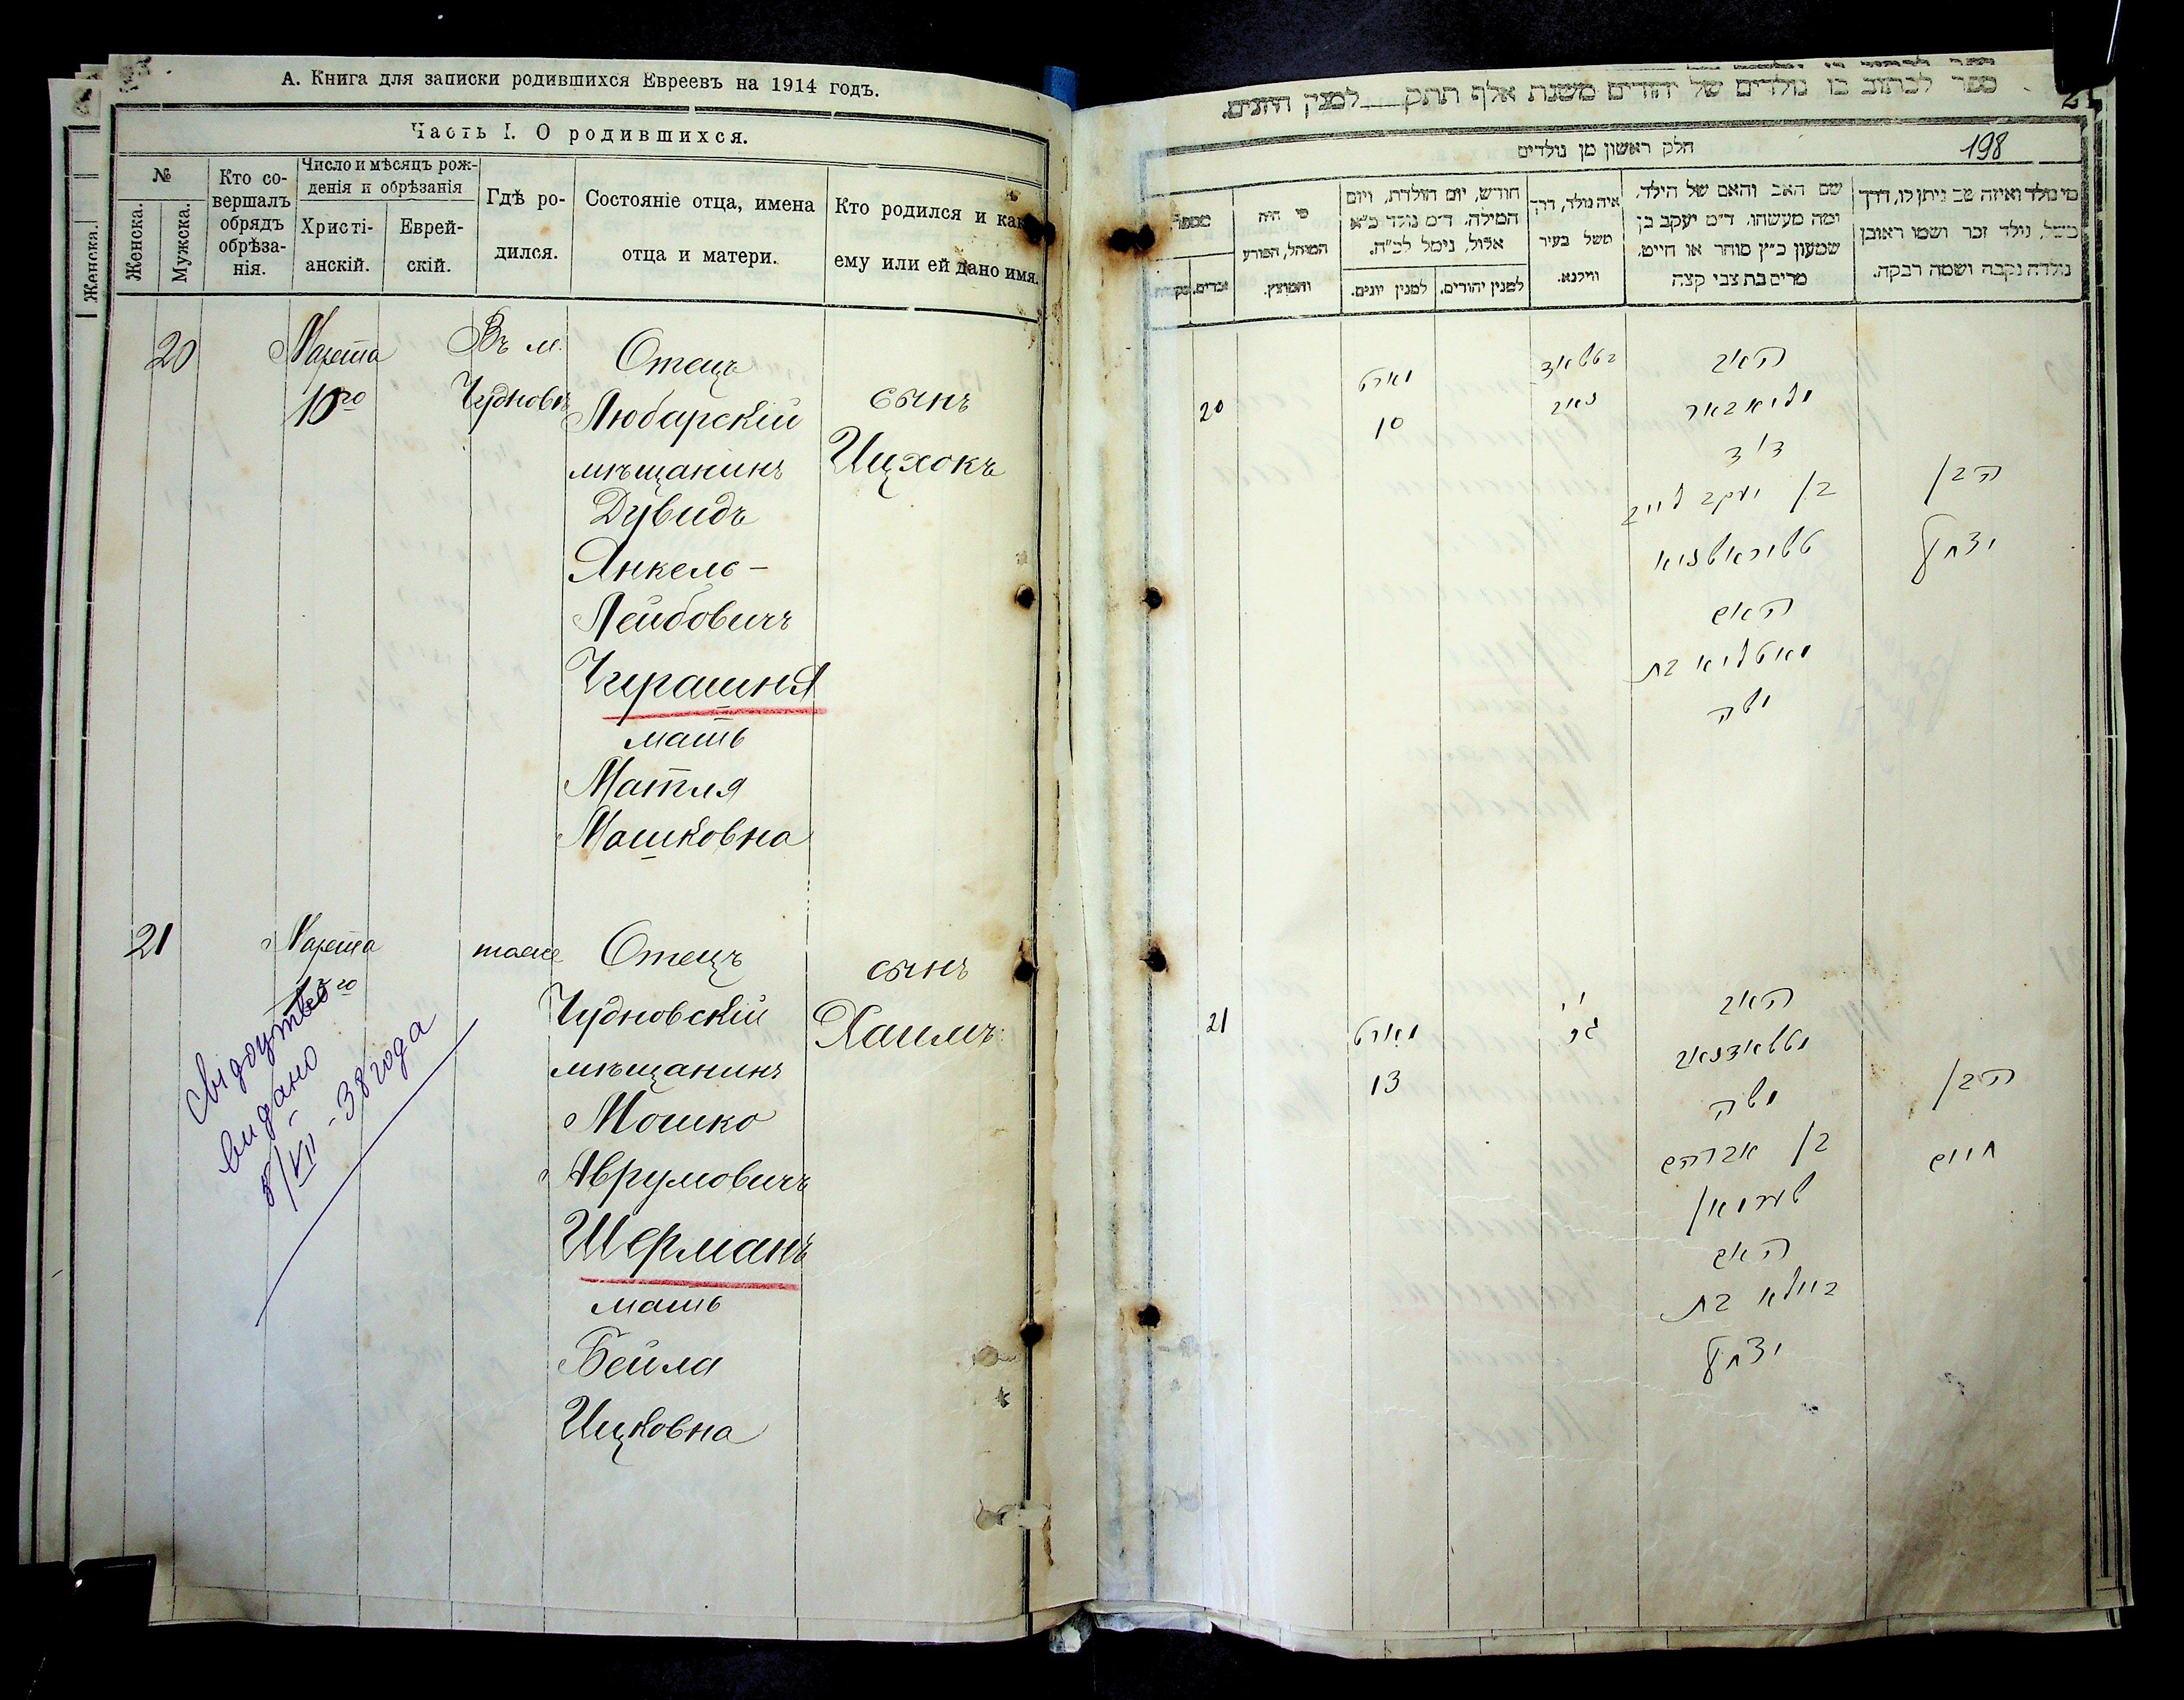 А. Книга для записки родившихся Евреевъ на 1914 годъ.
Часть I. О родившихся.
№
Женска.
Мужска.
Кто со-
вершалъ
обрядъ
обрѣза-
нія.
Число и мѣсяцъ рож-
денія и обрѣзанія
Христі-
анскій.
Еврей-
скій.
Гдѣ ро-
дился.
Состояніе отца, имена
отца и матери.
Кто родился и как
ему или ей дано имя.
Женска.
20
Марта
10го
Въ м.
Чудновѣ
Отецъ
Любарскій
мѣщанинъ
Дувидъ
Янкель-
Лейбовичъ
Чурашня
мать
Матля
Мошковна
сынъ
Ицхокъ
21
Марта
тоже
Отецъ
Чудновскій
мѣщанинъ
Мошко
Аврумовичъ
Шерманъ
мать
Бейла
Ицковна
сынъ
Хаимъ
Свідоцтво
видано
8/VII-38 года
ספר לכתוב בו נולדים של יהודים משנת אלף תתק למנין היונים.
198
חלק ראשון מן נולדים
מספר
זכרים.
מי היה
המוהל, הפורע
והמוצץ.
חודש, יום הולדת, ויום
המילה. ד״מ נולד כ״א
אלול, נימל לכ״ח.
למנין יונים.
למנין יהודים.
איה נולד, דרך
משל בעיר
ווילנא.
שם האב והאם של הילד.
ומה מעשהו. ד״מ יעקב בן
שמעון כ״ץ סוחר או חייט.
מרים בת צבי קצה
מי נולד ואיזה שם ניתן לו, דרך
משל, נולד זכר ושמו ראובן
נולדה נקבה ושמה רבקה.
20
מארט
10
האב
דוד
בן יעקב לייב
טשוראשניא
האם
מאטליא בת
משה
הבן
יצחק
21
מארט
13
האב
משה
בן אברהם
שערמאן
האם
ביילא בת
יצחק
הבן
חיים